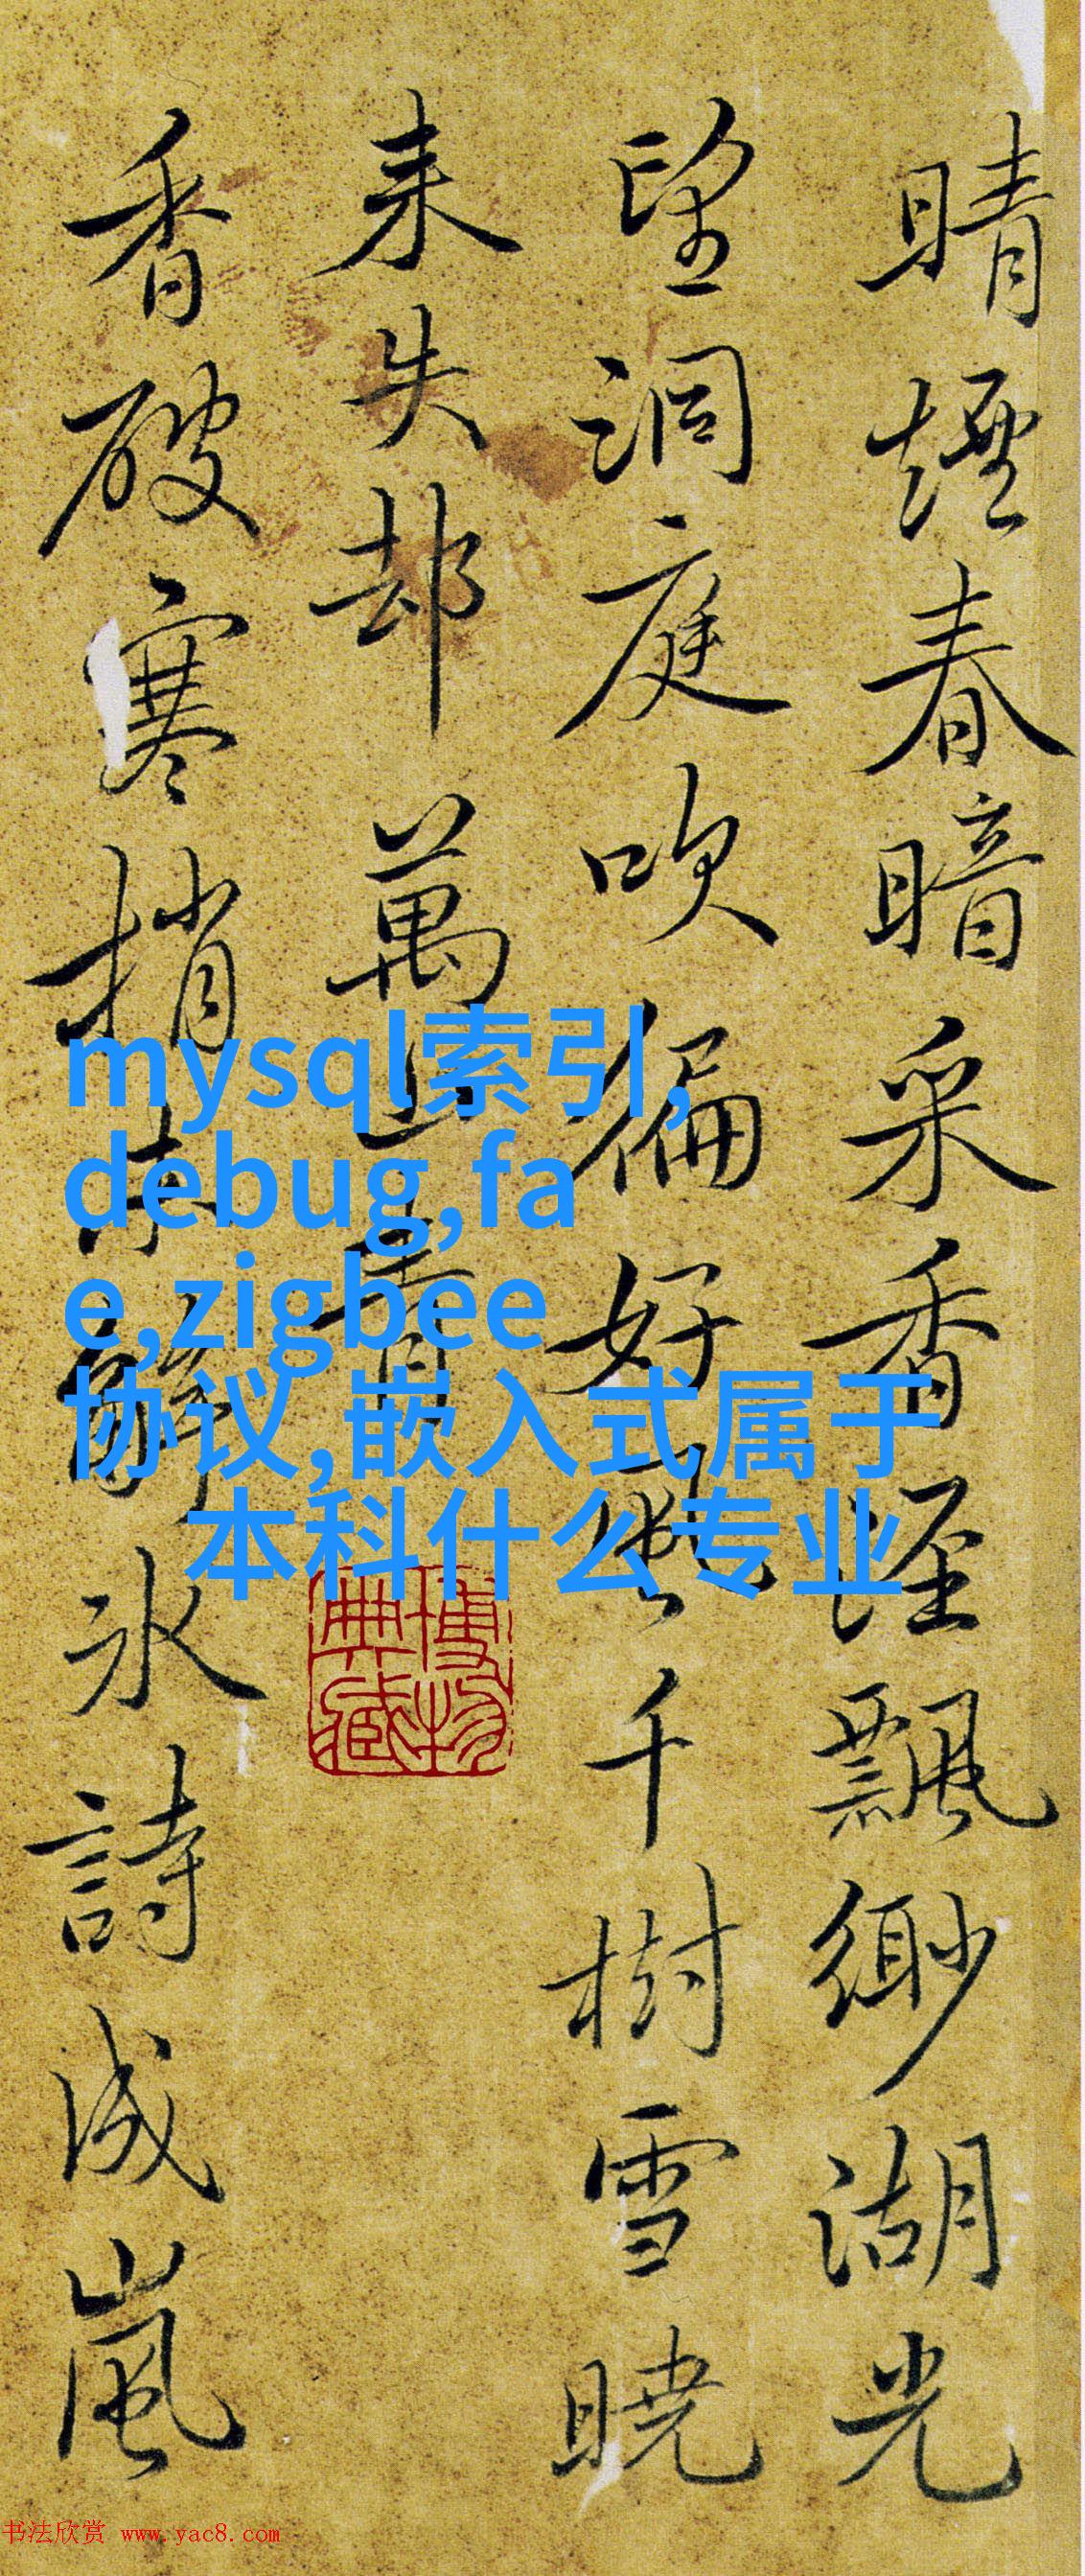 晴煙春暗采香涇飄緲湖光
望洞庭吹徧好風千樹雪曉
来失却萬山青
香破寒梢未解冰詩成嵐
mysql索引,
debug,fa
e,zigbee
协议,嵌入式属于
本科什么专业
博物
典藏
书法欣赏 www.yac8.com